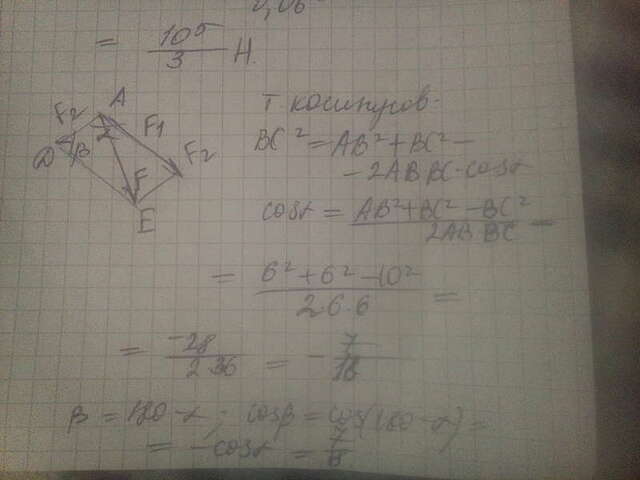 0,06
= 10⁵/3 Н.
A
F2
F1
α
D
β
F
F2
E
Т. косинусов.
BC² = AB² + BC² –
– 2AB BC·cosα
cosα = AB²+BC² – BC² / 2AB·BC =
= 6² + 6² – 10² / 2·6·6 =
= –28 / 2 36 = – 7/18
β = 180 – α ; cosβ = cos(180 – α) =
= – cosα = 7/8